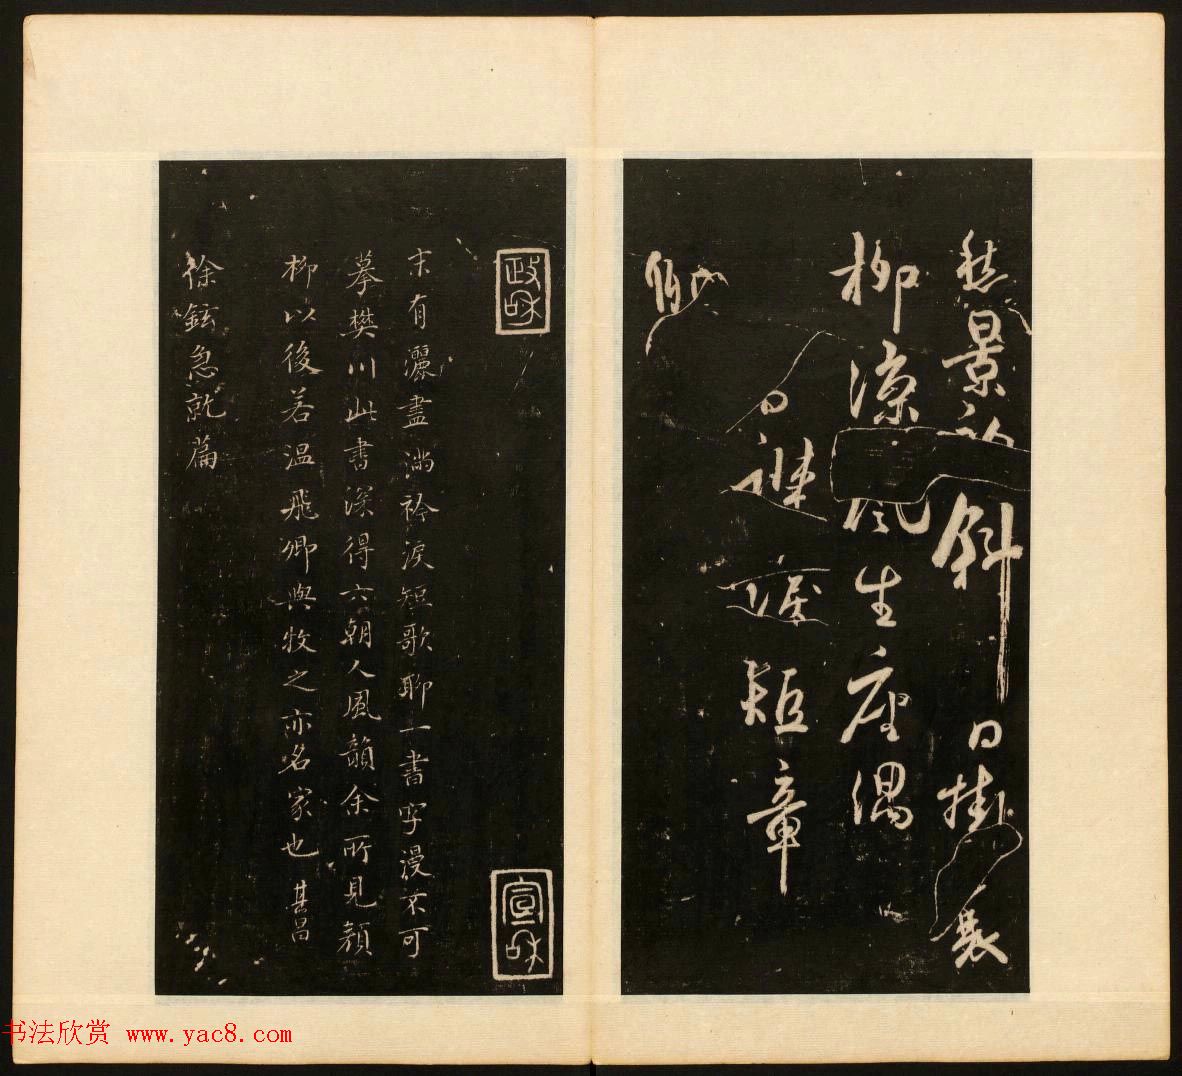 愁景初斜日掛衰
柳涼風生座隅
日進淚短章
政和
宣和
末有灑盡滿衿淚短歌聊一書字漫不可
摹樊川此書深得六朝人風韻余所見顏
柳以後若温飛卿與牧之亦名家也其昌
徐鉉急就篇
书法欣赏 www.yac8.com